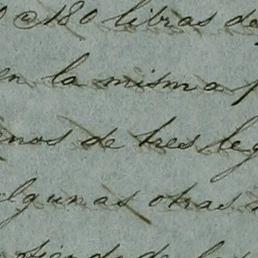 @ 180 libras de
en la misma
nos de tres leg
algunas otras